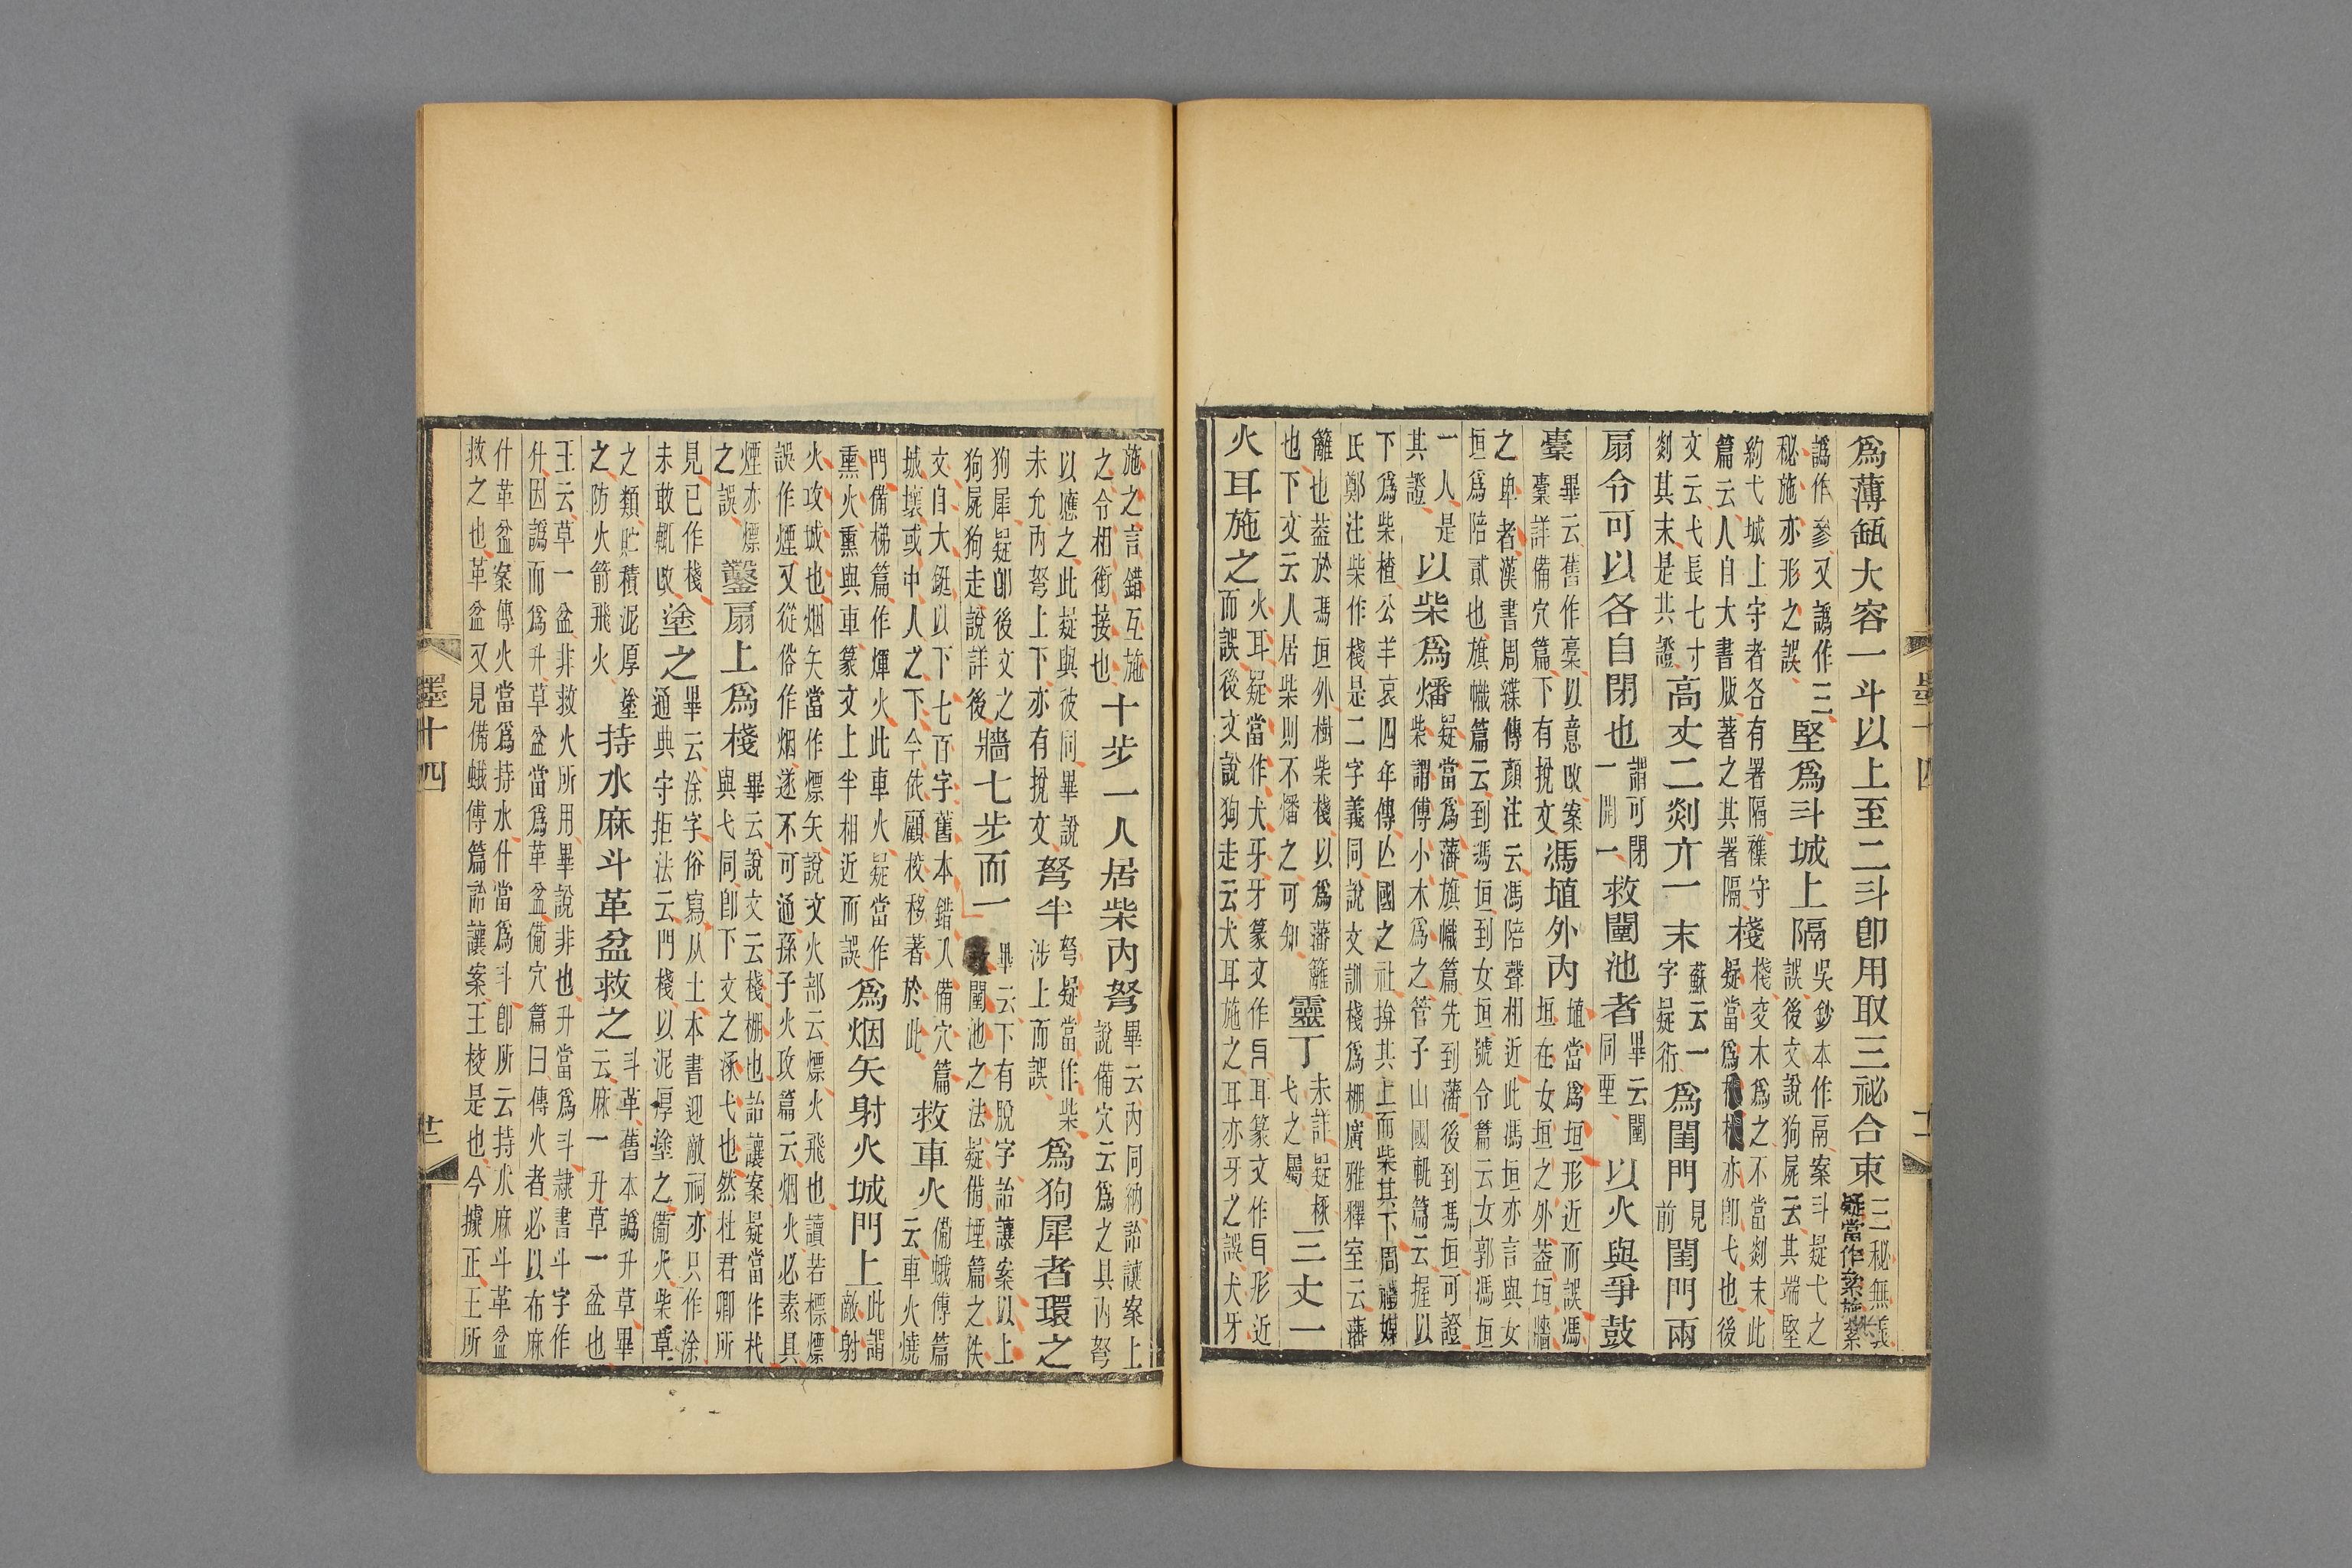 爲薄缻大容一斗以上至二斗卽用取三祕合束三秘無義疑當作絫施絫
譌作參又譌作三秘施亦形之誤堅爲斗城上隔吳鈔本作隔案斗疑弋之誤後文說狗屍云其端堅
約弋城上守者各有署隔襍守篇云人自大書版著之其署隔棧棧交木爲之不當剡末此疑當爲亦卽弋也後
文云弋長七寸剡其末是其證高丈二剡亓一末蘇云一字疑衍爲閨門見前閨門兩
扇令可以各自閉也謂可閉一開一救闉池者畢云闉同垔以火與爭鼓
橐畢云舊作橐以意改案橐詳備穴篇下有挩文馮埴外內埴當爲垣形近而誤馮垣在女垣之外蓋垣牆
之卑者漢書周緤傳顏注云馮陪聲相近此馮垣亦言與女垣爲陪貳也旗幟篇云到馮垣到女垣號令篇云女郭馮垣
一人是其證以柴爲燔疑當爲藩旗幟篇先到藩後到馮垣可證柴謂傅小木爲之管子山國軌篇云握以
下爲柴楂公羊哀四年傳亾國之社揜其上而柴其下周禮媒氏鄭注柴作棧是二字義同說文訓棧爲棚廣雅釋室云藩
籬也蓋於馮垣外樹柴棧以爲藩籬也下文云人居柴則不燔之可知靈丁未詳疑椓弋之屬三丈一
火耳施之火耳疑當作犬牙牙篆文作耳篆文作形近而誤後文說狗走云犬耳施之耳亦牙之誤犬牙
施之言錯互施之令相銜接也十步一人居柴內弩畢云內同納詒讓案上說備穴云爲之具內弩
以應之此疑與彼同畢說未允內弩上下亦有挩文弩半弩疑當作柴涉上而誤爲狗犀者環之
狗犀疑卽後文之狗屍狗走說詳後牆七步而一畢云下有脫字詒讓案以上救闉池之法疑備堙篇之佚
文自大鋌以下七百字舊本錯入備穴篇城壞或中人之下今依顧校移著於此救車火備蛾傅篇云車火燒
門備梯篇作煇火此車火疑當作熏火熏與車篆文上半相近而誤爲烟矢射火城門上此謂敵射
火攻城也烟矢當作熛矢說文火部云熛火飛也讀若標熛誤作煙又從俗作烟遂不可通孫子火攻篇云烟火必素具
煙亦熛之誤鑿扇上爲棧畢云說文云棧棚也詒讓案疑當作杙與弋同卽下文之涿弋也然杜君卿所
見已作棧未敢輒改塗之畢云涂字俗寫从土本書迎敵祠亦只作涂通典守拒法云門棧以泥厚塗之備火柴草
之類貯積泥厚塗之防火箭飛火持水麻斗革盆救之斗革舊本譌升草畢云麻一升草一盆也
王云草一盆非救火所用畢說非也升當爲斗隸書斗字作升因譌而爲升草盆當爲革盆備穴篇曰傅火者必以布麻
什革盆案傅火當爲持水什當爲斗卽所云持水麻斗革盆救之也革盆又見備蛾傅篇詒讓案王校是也今據正王所
墨十四